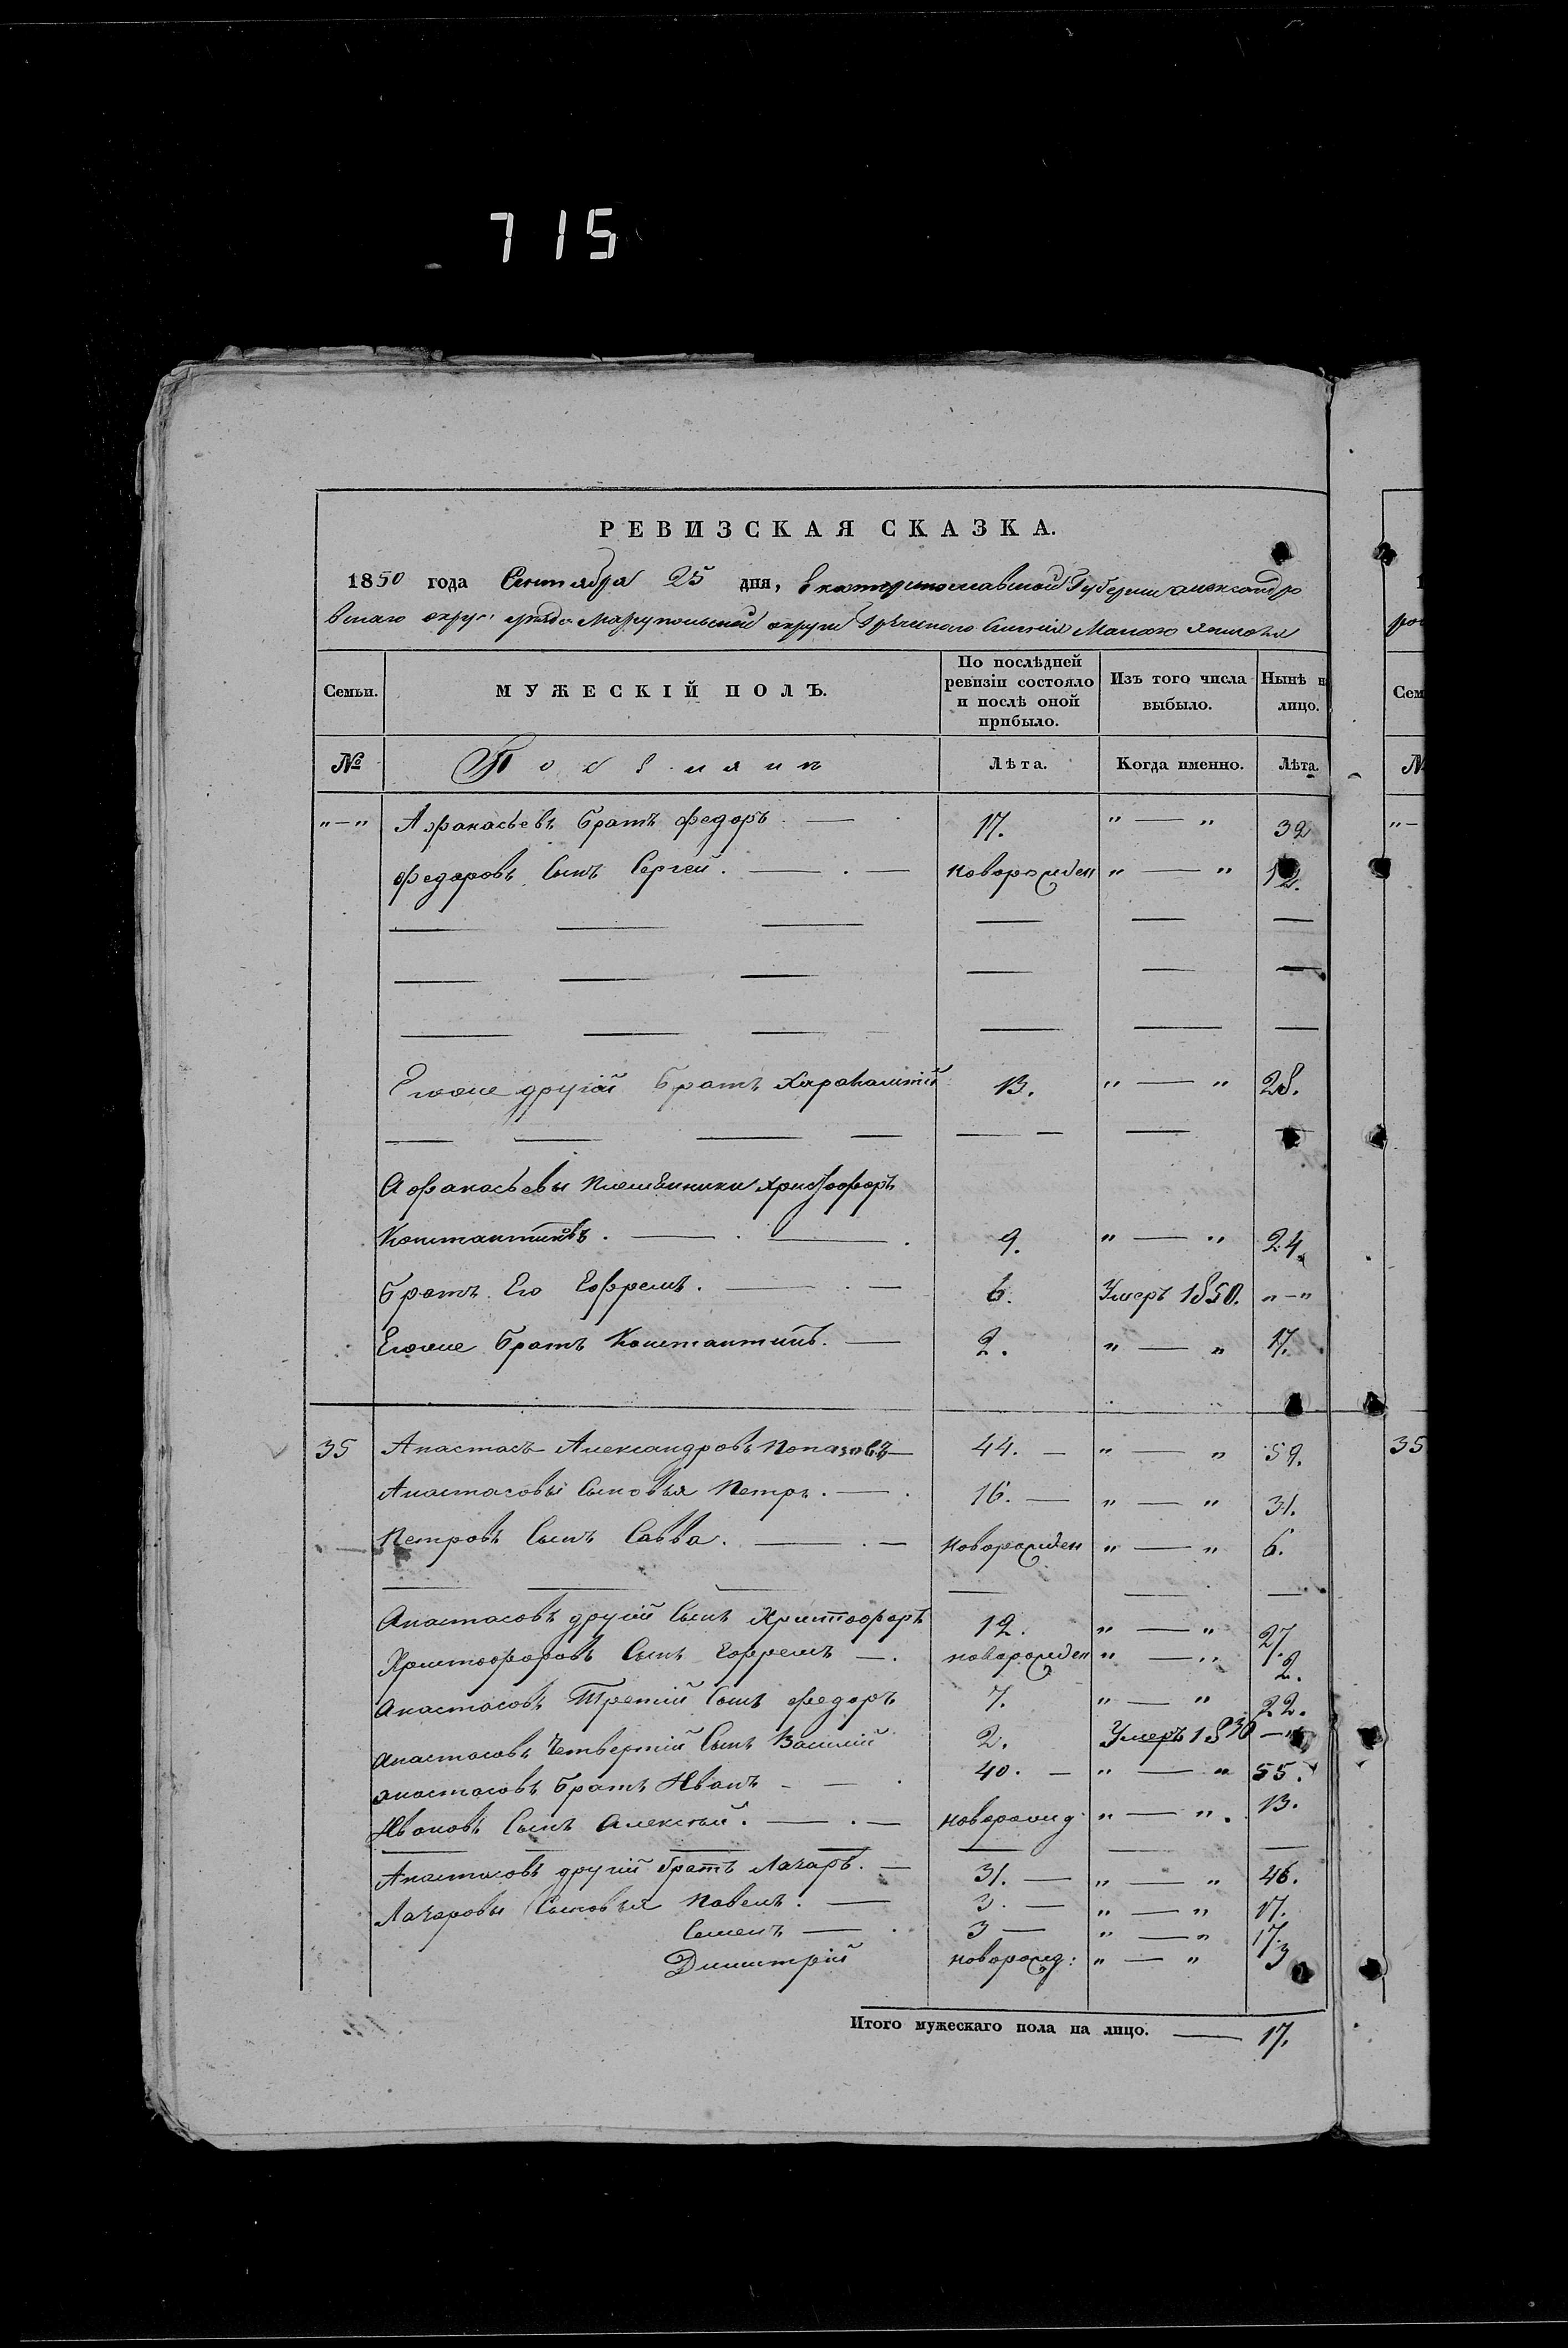 715
РЕВИЗСКАЯ СКАЗКА.
1850 года Сентября 25 дня, Екатеринославской Губернии александро
вскаго округа Марупольской округи Греческаго Селенія Малаго Янисоля
Семьи. МУЖЕСКІЙ ПОЛЪ. По послѣдней ревизіи состояло и послѣ оной прибыло. Изъ того числа выбыло. Нынѣ на лицо.
№ Поселянъ Лѣта. Когда именно. Лѣта.
"—" Афанасьевъ братъ Федоръ — 17. " — " 32
Федоровъ Сынъ Сергей. — . — новорожден " — " 12.
Егоже другій братъ Харалампій 13. " — " 28.
Афанасьевы племѣнники Христофоръ
Константиновъ. — . — . 9. " — " 24.
братъ Его Ефремъ. — . — 6. Умеръ 1850. "—"
Егоже братъ Константинъ. — 2. " — " 17.
35 Анастасъ Александровъ Попазовъ — 44. — " — " 59.
Анастасовы Сыновья Петръ. — . 16. — " — " 31.
Петровъ Сынъ Савва. — . — новорожден " — " 6.
Анастасовъ другій Сынъ Христофоръ 12. " — " 27.
Христофоровъ Сынъ Ефремъ — . новорожден " — " 2.
Анастасовъ Третій Сынъ Федоръ 7. " — " 22.
Анастасовъ Четвертій Сынъ Василій 2. Умеръ 1830 —"
Анастасовъ братъ Иванъ — — . 40. — " — " 55.
Ивановъ Сынъ Алексѣй. — . — новорожд: " — ". 13.
Анастасовъ другій братъ Лазарь. — 31. — " — " 46.
Лазаровы Сыновья Павелъ. — 3. — " — " 17.
Семенъ — . 3 — " — " 17.
Димитрій новорожд: " — " 3
Итого мужескаго пола на лицо. — 17.
35